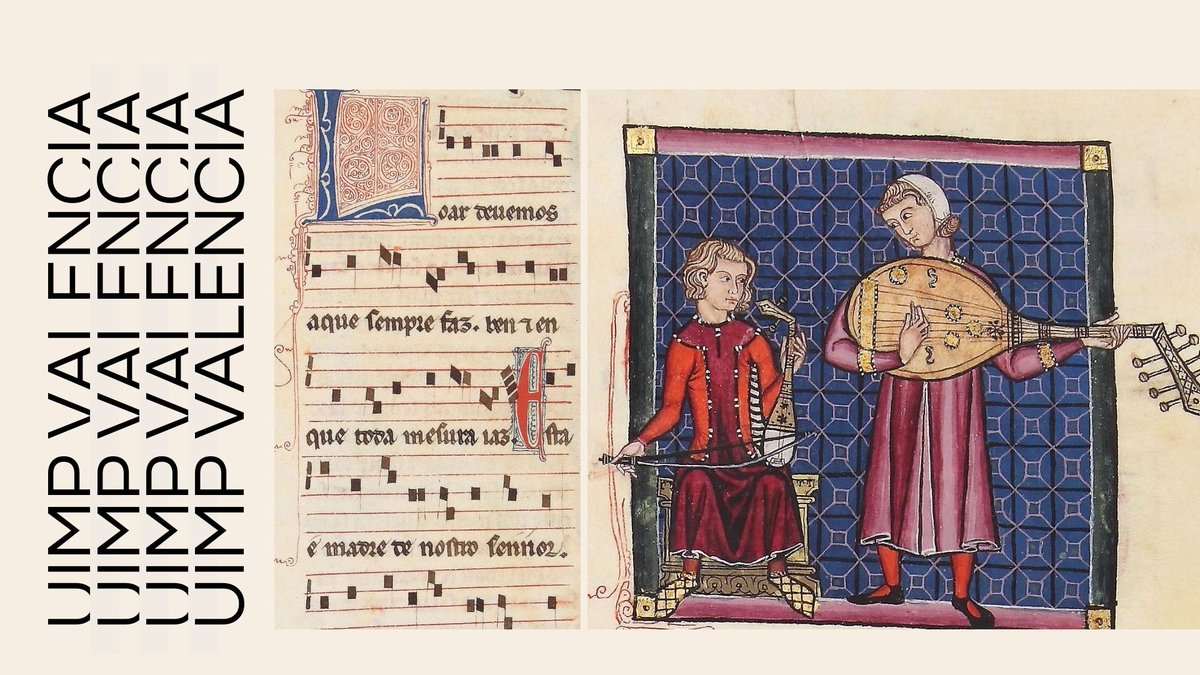 UIMP VALENCIA
UIMP VALENCIA
UIMP VALENCIA
UIMP VALENCIA
Loar deuemos
aque sempre faz. ben ⁊ en
que toda mesura iaz. Esta
é madre de nostro sennor.